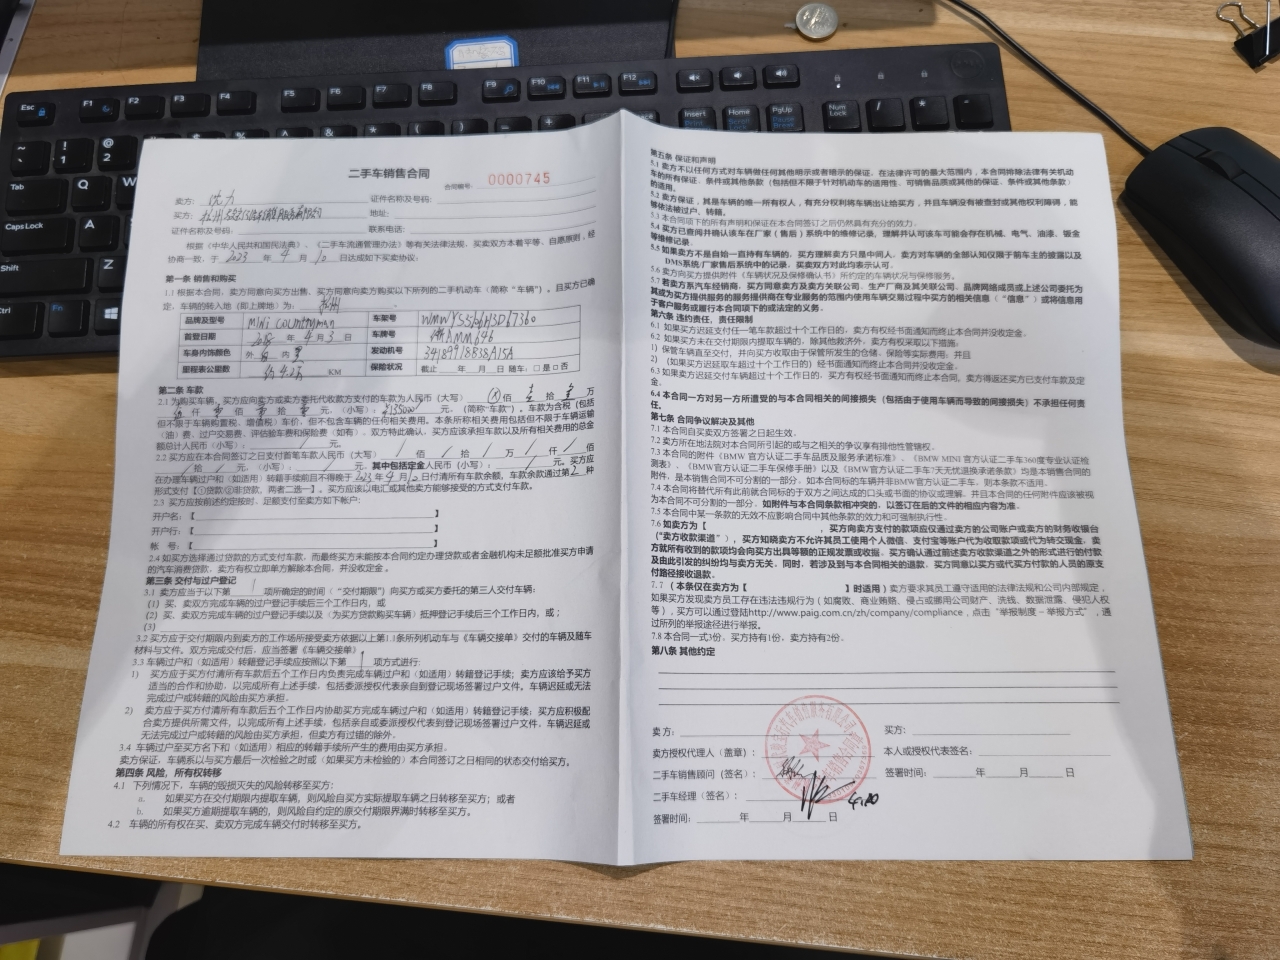 二手车销售合同
合同编号： 0000745
卖方： 沈力 证件名称及号码：
买方： 杭州 地址：
证件名称及号码： 联系电话：
根据《中华人民共和国民法典》、《二手车流通管理办法》等有关法律法规，买卖双方本着平等、自愿原则，经
协商一致，于 2023 年 4 月 10 日达成如下买卖协议：
第一条 销售和购买
1.1 根据本合同，卖方同意向买方出售、买方同意向卖方购买以下所列的二手机动车（简称“车辆”）。且买方已确
定，车辆的转入地（即上牌地）为： 杭州
品牌及型号 MINI COUNTRYMAN 车架号
首登日期 年 4 月 3 日 车牌号
车身内饰颜色 外 内 发动机号
里程表公里数 KM 保险状况 截止 年 月 日 随车：□是 □否
第二条 车款
2.1 为购买车辆，买方应向卖方或卖方委托代收款方支付的车款为人民币（大写） 佰 拾 万
仟 佰 拾 元，（小写：¥135000 元，（简称“车款”）。车款为含税（包括
但不限于车辆购置税、增值税）车价，但不包含车辆的任何相关费用。本条所称相关费用包括但不限于车辆运输
（油）费、过户交易费、评估验车费和保险费（如有）。双方特此确认，买方应该承担车款以及所有相关费用的总金
额总计人民币（小写）： / 元。
2.2 买方应在本合同签订之日支付首笔车款人民币（大写） / 佰 / 万 / 仟 / 佰
/ 拾 / 元，（小写）： / 元，其中包括定金人民币（小写）： / 元。买方应
在办理车辆过户和（如适用）转籍手续前且不得晚于 2023 年 4 月 10 日付清所有车款余额。车款余款通过第 2 种
形式支付【①贷款/②非贷款，两者二选一】。买方应该以电汇或其他卖方能够接受的方式支付车款。
2.3 买方应按前述约定按时、足额支付至卖方如下帐户：
开户名：【 】
开户行：【 】
帐 号：【 】
2.4 如买方选择通过贷款的方式支付车款，而最终买方未能按本合同约定办理贷款或者金融机构未足额批准买方申请
的汽车消费贷款，卖方有权立即单方解除本合同，并没收定金。
第三条 交付与过户登记
3.1 卖方应当于以下第 1 项所确定的时间（“交付期限”）向买方或买方委托的第三人交付车辆：
(1) 买、卖双方完成车辆的过户登记手续后三个工作日内，或
(2) 买、卖双方完成车辆的过户登记手续以及（为买方贷款购买车辆）抵押登记手续后三个工作日内，或；
(3)
3.2 买方应于交付期限内到卖方的工作场所接受卖方依据以上第1.1条所列机动车与《车辆交接单》交付的车辆及随车
材料与文件。双方完成交付后，应当签署《车辆交接单》。
3.3 车辆过户和（如适用）转籍登记手续应按照以下第 1 项方式进行：
1) 买方应于买方付清所有车款后五个工作日内负责完成车辆过户和（如适用）转籍登记手续；卖方应该给予买方
适当的合作和协助，以完成所有上述手续，包括委派授权代表亲自到登记现场签署过户文件。车辆迟延或无法
完成过户或转籍的风险由买方承担。
2) 卖方应于买方付清所有车款后五个工作日内协助买方完成车辆过户和（如适用）转籍登记手续；买方应积极配
合卖方提供所需文件，以完成所有上述手续，包括亲自或委派授权代表到登记现场签署过户文件。车辆迟延或
无法完成过户或转籍的风险由买方承担，但卖方有过错的除外。
3.4 车辆过户至买方名下和（如适用）相应的转籍手续所产生的费用由买方承担。
卖方保证，车辆系以与买方最后一次检验之时或（如果买方未检验的）本合同签订之日相同的状态交付给买方。
第四条 风险，所有权转移
4.1 下列情况下，车辆的毁损灭失的风险转移至买方：
a. 如果买方在交付期限内提取车辆，则风险自买方实际提取车辆之日转移至买方；或者
b. 如果买方逾期提取车辆的，则风险自约定的原交付期限届满时转移至买方。
4.2 车辆的所有权在买、卖双方完成车辆交付时转移至买方。
第五条 保证和声明
5.1 卖方不以任何方式对车辆做任何其他明示或者暗示的保证。在法律许可的最大范围内，本合同将除法律有关机动
车的所有保证、条件或其他条款（包括但不限于针对机动车的适用性、可销售品质或其他的保证、条件或其他条款）
的适用。
5.2 卖方保证，其是车辆的唯一所有权人，有充分权利将车辆出让给买方，并且车辆没有被查封或其他权利障碍，能
够依法被过户、转籍。
5.3 本合同项下的所有声明和保证在本合同签订之后仍然具有充分的效力。
5.4 买方已查阅并确认该车在厂家（售后）系统中的维修记录，理解并认可该车可能会存在机械、电气、油漆、钣金
等维修记录。
5.5 如果卖方不是自始一直持有车辆的，买方理解卖方只是中间人，卖方对车辆的全部认知仅限于前车主的披露以及
DMS系统/厂家售后系统中的记录，买卖双方对此均表示认可。
5.6 卖方向买方提供附件《车辆状况及保修确认书》所约定的车辆状况与保修服务。
5.7 若卖方系汽车经销商，买方同意卖方及卖方关联公司、生产厂商及其关联公司、品牌网络成员或上述公司委托为
其或为买方提供服务的服务提供商在专业服务的范围内使用车辆交易过程中买方的相关信息（“信息”）或将信息用
于客户服务或履行本合同项下的或法定的义务。
第六条 违约责任，责任限制
6.1 如果买方迟延支付任一笔车款超过十个工作日的，卖方有权经书面通知而终止本合同并没收定金。
6.2 如果买方未在交付期限内提取车辆的，除其他救济外，卖方有权采取以下措施：
1) 保管车辆直至交付，并向买方收取由于保管所发生的仓储、保险等实际费用；并且
2) （如果买方迟延取车超过十个工作日的）经书面通知而终止本合同并没收定金。
6.3 如果卖方迟延交付车辆超过十个工作日的，买方有权经书面通知而终止本合同。卖方得返还买方已支付车款及定
金。
6.4 本合同一方对另一方所遭受的与本合同相关的间接损失（包括由于使用车辆而导致的间接损失）不承担任何责
任。
第七条 合同争议解决及其他
7.1 本合同自买卖双方签署之日起生效。
7.2 卖方所在地法院对本合同所引起的或与之相关的争议享有排他性管辖权。
7.3 本合同的附件《BMW 官方认证二手车品质及服务承诺标准》、《BMW MINI 官方认证二手车360度专业认证检
测表》、《BMW官方认证二手车保修手册》以及《BMW官方认证二手车7天无忧退换承诺条款》均是本销售合同的
附件，是本销售合同不可分割的一部分，如本合同的标车并非BMW官方认证二手车，则本条款不适用。
7.4 本合同将替代所有此前就合同标的于双方之间达成的口头或书面的协议或理解，并且本合同的任何附件应该被视
为本合同不可分割的一部分，如附件与本合同条款相冲突的，以签订在后的文件的相应内容为准。
7.5 本合同中某一条款的无效不应影响合同中其他条款的效力和可强制执行性。
7.6 如卖方为【 ，买方向卖方支付的款项应仅通过卖方的公司账户或卖方的财务收银台
（“卖方收款渠道”），买方知晓卖方不允许其员工使用个人微信、支付宝等账户代为收取款项或代为转交现金。卖
方就所收到的款项均会向买方出具等额的正规发票或收据。买方确认通过前述卖方收款渠道之外的形式进行的付款
及由此引发的纠纷均与卖方无关。同时，若涉及到与本合同相关的退款，买方同意以买方或代买方付款的人员的原支
付路径接收退款。
7.7 （本条仅在卖方为【 】时适用）卖方要求其员工遵守适用的法律法规和公司内部规定，
如果买方发现卖方员工存在违法违规行为（如腐败、商业贿赂、侵占或挪用公司财产、洗钱、数据泄露、侵犯人权
等），买方可以通过登陆http://www.paig.com.cn/zh/company/compliance，点击“举报制度－举报方式”，通
过所列的举报途径进行举报。
7.8 本合同一式3份，买方持有1份，卖方持有2份。
第八条 其他约定
卖方： 买方：
卖方授权代理人（盖章）： 本人或授权代表签名：
二手车销售顾问（签名）： 签署时间： 年 月 日
二手车经理（签名）： 4.10
签署时间： 年 月 日